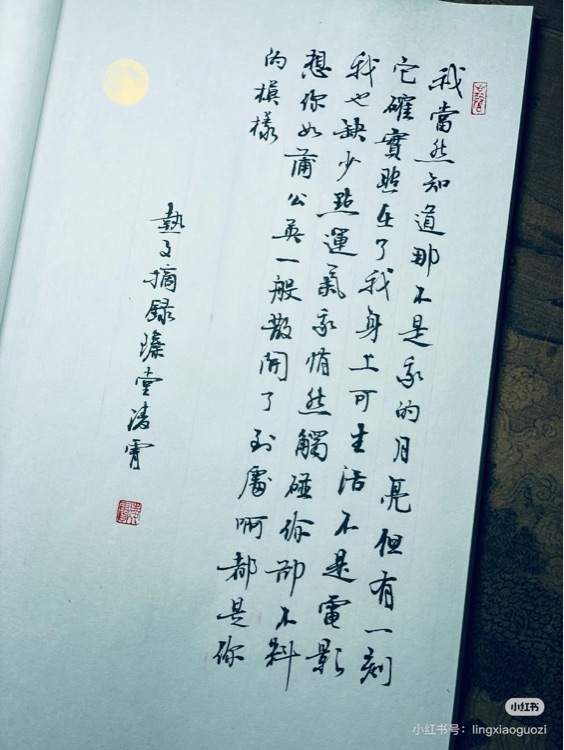 我當然知道那不是我的月亮但有一刻
它確實照在了我身上可生活不是電影
我也缺少點運氣我悄然觸碰你卻不料
想你如蒲公英一般散開了到處啊都是你
的模樣
熱文摘録堂淩霄
小红书
小红书号：lingxiaoguozi